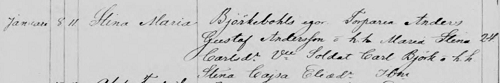 Januari 8 11 Stina Maria Björkebohls egor Torparen Anders
Gustaf Andersson o h.h. Maria Stina 24
Carlsdr. Vn: Soldat Carl Björk o h.h
Stina Cajsa Elisdr.